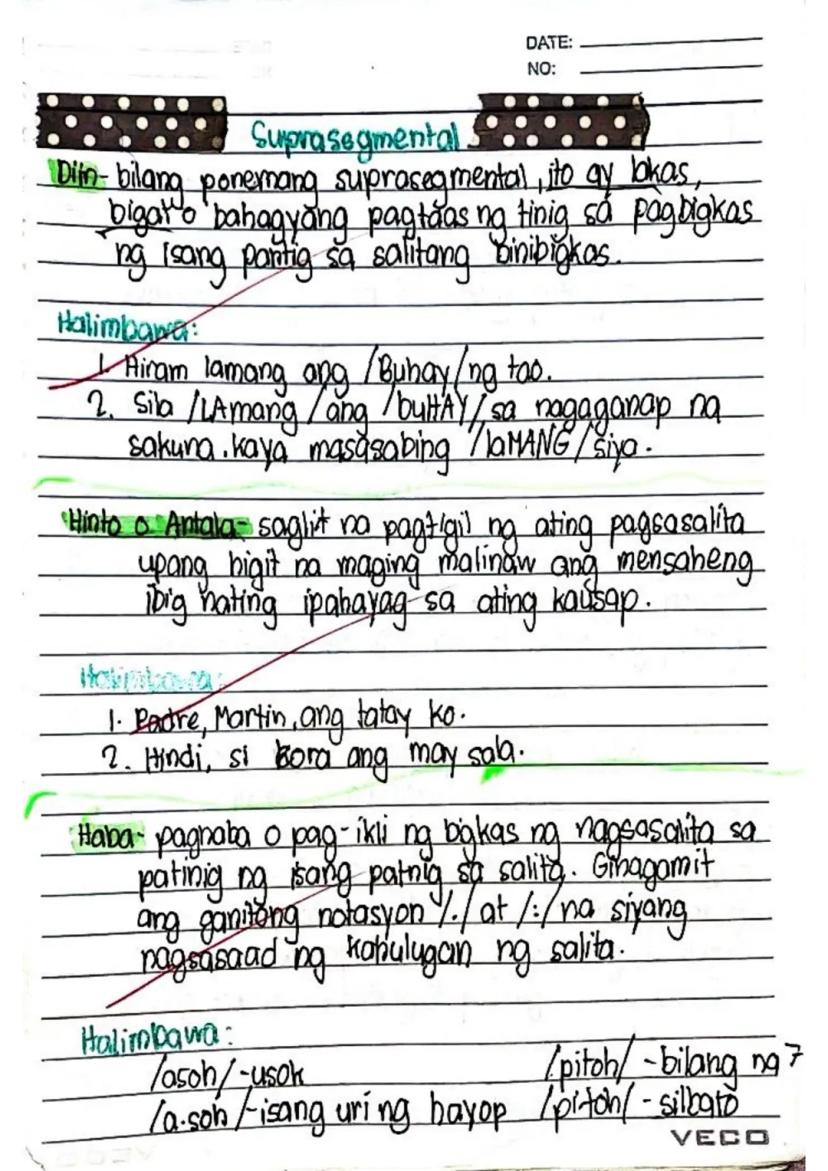 DATE:
NO:
Suprasegmental
Diin- bilang ponemang suprasegmental, ito ay lakas,
bigat o bahagyang pagtaas ng tinig sa pagbigkas
ng isang pantig sa salitang binibigkas.
Halimbawa:
1. Hiram lamang ang /Buhay/ ng tao.
2. Sila /LAmang/ ang /buHAY/ sa nagaganap na
sakuna. kaya masasabing /laMANG/ siya.
Hinto o Antala- saglit na pagtigil ng ating pagsasalita
upang higit na maging malinaw ang mensaheng
ibig nating ipahayag sa ating kausap.
Halimbawa:
1. Padre, Martin, ang tatay ko.
2. Hindi, si Cora ang may sala.
Haba- paghaba o pag-ikli ng bigkas ng nagsasalita sa
patinig ng isang patnig sa salita. Ginagamit
ang ganitong notasyon /./ at /:/ na siyang
nagsasaad ng kahulugan ng salita.
Halimbawa:
/asoh/ -usok /pitoh/ -bilang na 7
/a.soh/ -isang uri ng hayop /pi.toh/ - silbato
VECO